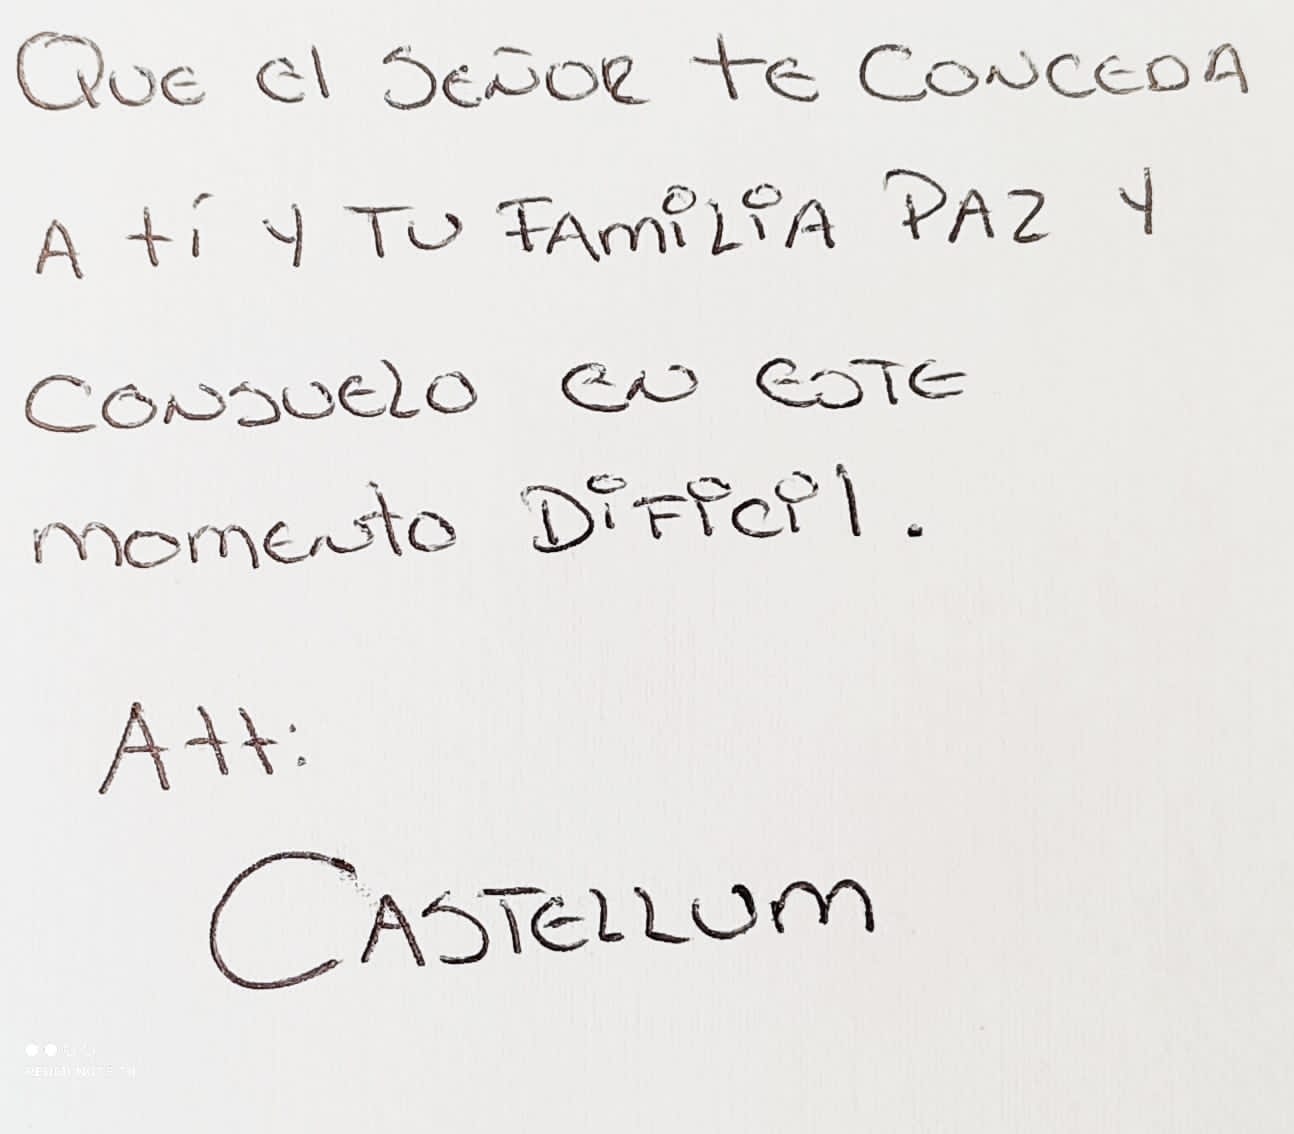 Que el Señor te conceda
a tí y tu familia paz y
consuelo en este
momento dificil.
Att:
Castellum
REDMI NOTE 11